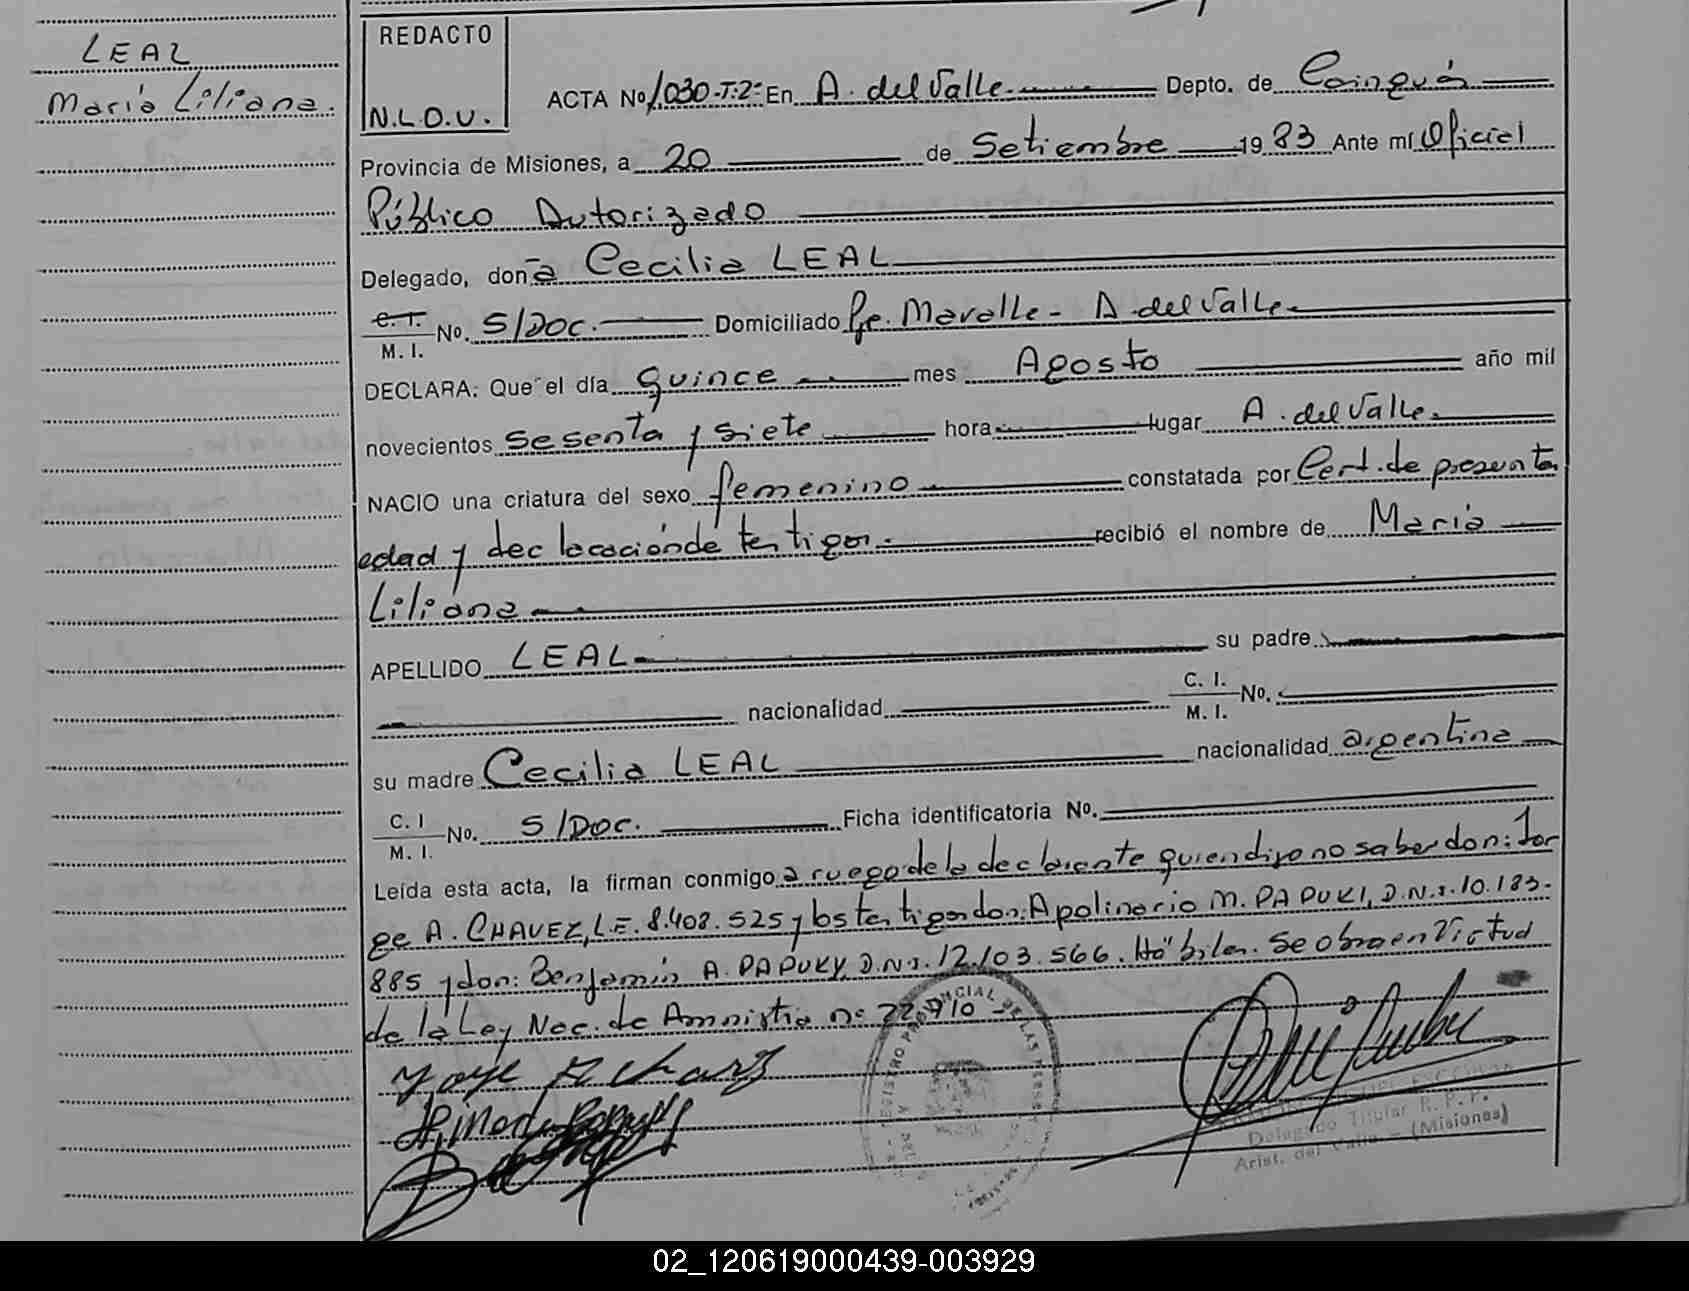 LEAL
María Liliana.
REDACTO
N.L.O.U.
ACTA No 1.030-T:2: En A. del Valle Depto. de Cainguás
Provincia de Misiones, a 20 de Setiembre 1983 Ante mí Oficial
Público Autorizado
Delegado, doña Cecilia LEAL
C. I.
M. I. No. S/DOC. Domiciliado Pje. Maralle - A. del Valle.
DECLARA: Que el día quince mes Agosto año mil
novecientos sesenta y siete hora lugar A. del Valle.
NACIO una criatura del sexo femenino constatada por Cert. de presunta
edad y declaración de testigos. recibió el nombre de María
Liliana
APELLIDO LEAL su padre
nacionalidad C. I.
M. I. No.
su madre Cecilia LEAL nacionalidad argentina
C. I
M. I. No. S/DOC. Ficha identificatoria No.
Leída esta acta, la firman conmigo a ruego de la declarante quien dijo no saber don: Jor
ge A. CHAVEZ, L.E. 8.408.525 y los testigos don: Apolinario M. PAPUKI, D.N.I. 10.183.
885 y don: Benjamín A. PAPUKY, D.N.I. 12.103.566. Hábiles. Se obra en Virtud
de la Ley Nac. de Amnistía nº 22.910
Jorge A Chavez
REGISTRO PROVINCIAL DE LAS PERSONAS
Delegado Titular R. P. P.
Arist. del Valle - (Misiones)
02_120619000439-003929